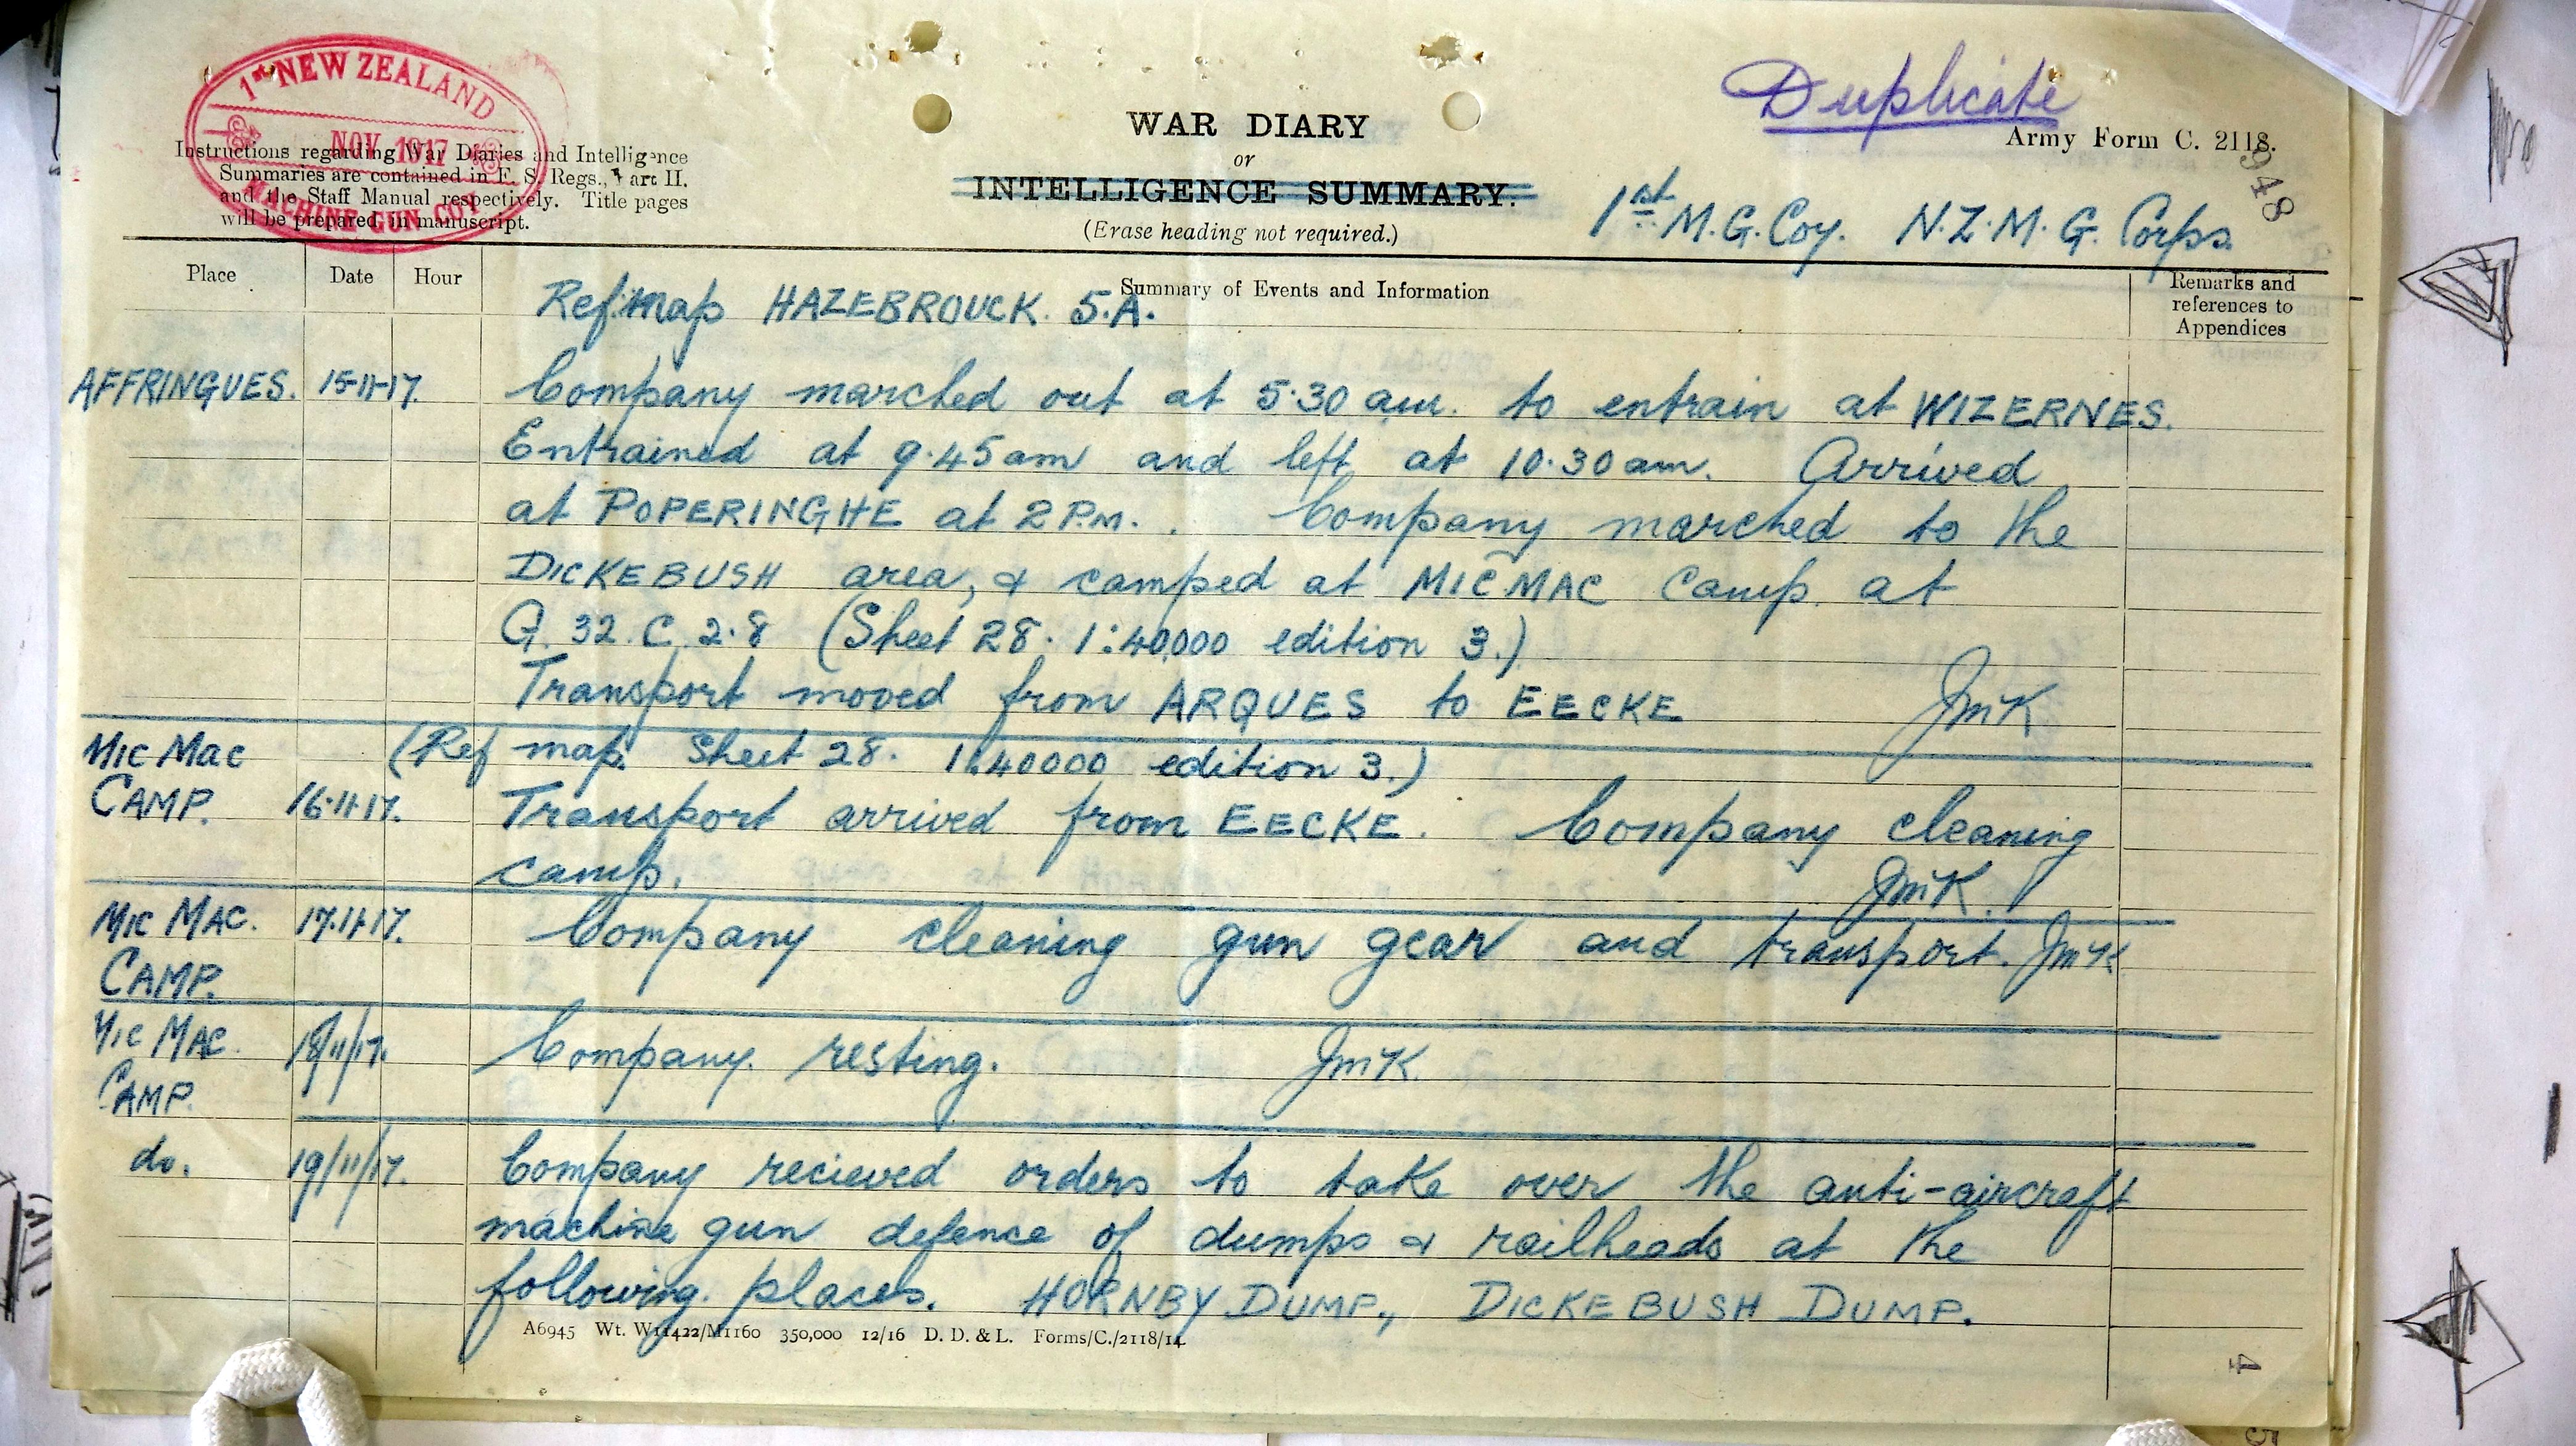 1st NEW ZEALAND
NOV 1917
MACHINE GUN COY.
Instructions regarding War Diaries and Intelligence
Summaries are contained in F. S. Regs., Part II.
and the Staff Manual respectively. Title pages
will be prepared in manuscript.
WAR DIARY
or
INTELLIGENCE SUMMARY.
(Erase heading not required.)
Duplicate
Army Form C. 2118.
948
1st M.G. Coy. N.Z. M. G. Corps.
Place Date Hour Summary of Events and Information Remarks and references to Appendices
Ref. Map HAZEBROUCK. 5.A.
AFFRINGUES. 15-11-17. Company marched out at 5.30 am. to entrain at WIZERNES.
Entrained at 9.45 am and left at 10.30 am. Arrived
at POPERINGHE at 2 P.m. . Company marched to the
DICKEBUSH area, & camped at MIC MAC Camp. at
G. 32. C. 2.8 (Sheet 28. 1:40,000 edition 3.)
Transport moved from ARQUES to EECKE JMcK
MIC MAC (Ref map. Sheet 28. 1:40000 edition 3.)
CAMP. 16.11.17. Transport arrived from EECKE. Company cleaning
camp. JMcK.
MIC MAC. 17.11.17. Company cleaning gun gear and transport. JMcK
CAMP.
MIC MAC. 18/11/17. Company. resting. JMcK.
CAMP.
do. 19/11/17. Company recieved orders to take over the anti-aircraft
machine gun defence of dumps & railheads at the
following. places. HORNBY DUMP., DICKEBUSH DUMP.
A6945 Wt. W11422/M1160 350,000 12/16 D. D. & L. Forms/C./2118/14
4
5